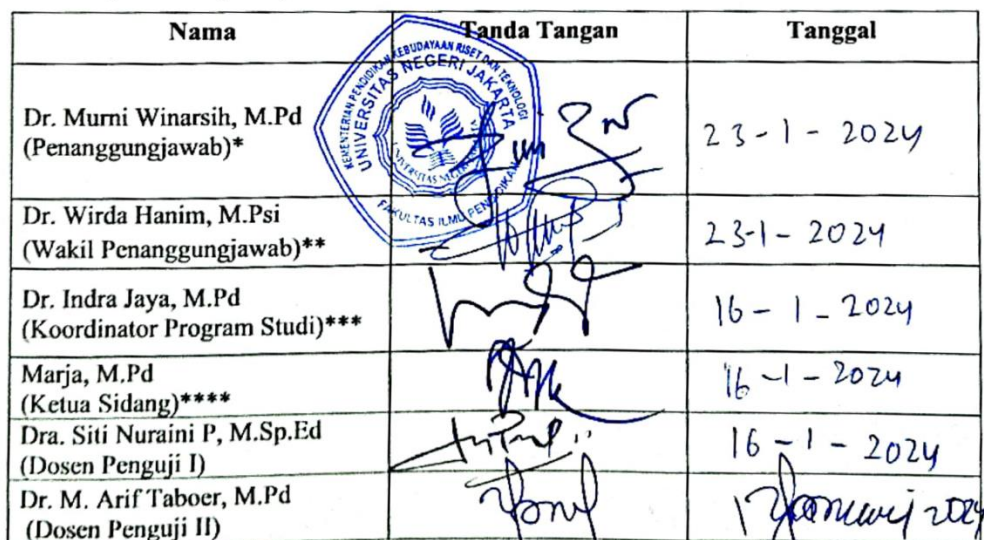 Nama Tanda Tangan Tanggal
KEMENTERIAN PENDIDIKAN KEBUDAYAAN RISET DAN TEKNOLOGI
UNIVERSITAS NEGERI JAKARTA
FAKULTAS ILMU PENDIDIKAN
Dr. Murni Winarsih, M.Pd
(Penanggungjawab)* 23-1-2024
Dr. Wirda Hanim, M.Psi
(Wakil Penanggungjawab)** 23-1-2024
Dr. Indra Jaya, M.Pd
(Koordinator Program Studi)*** 16-1-2024
Marja, M.Pd
(Ketua Sidang)**** 16-1-2024
Dra. Siti Nuraini P, M.Sp.Ed
(Dosen Penguji I) 16-1-2024
Dr. M. Arif Taboer, M.Pd
(Dosen Penguji II) Januari 2024